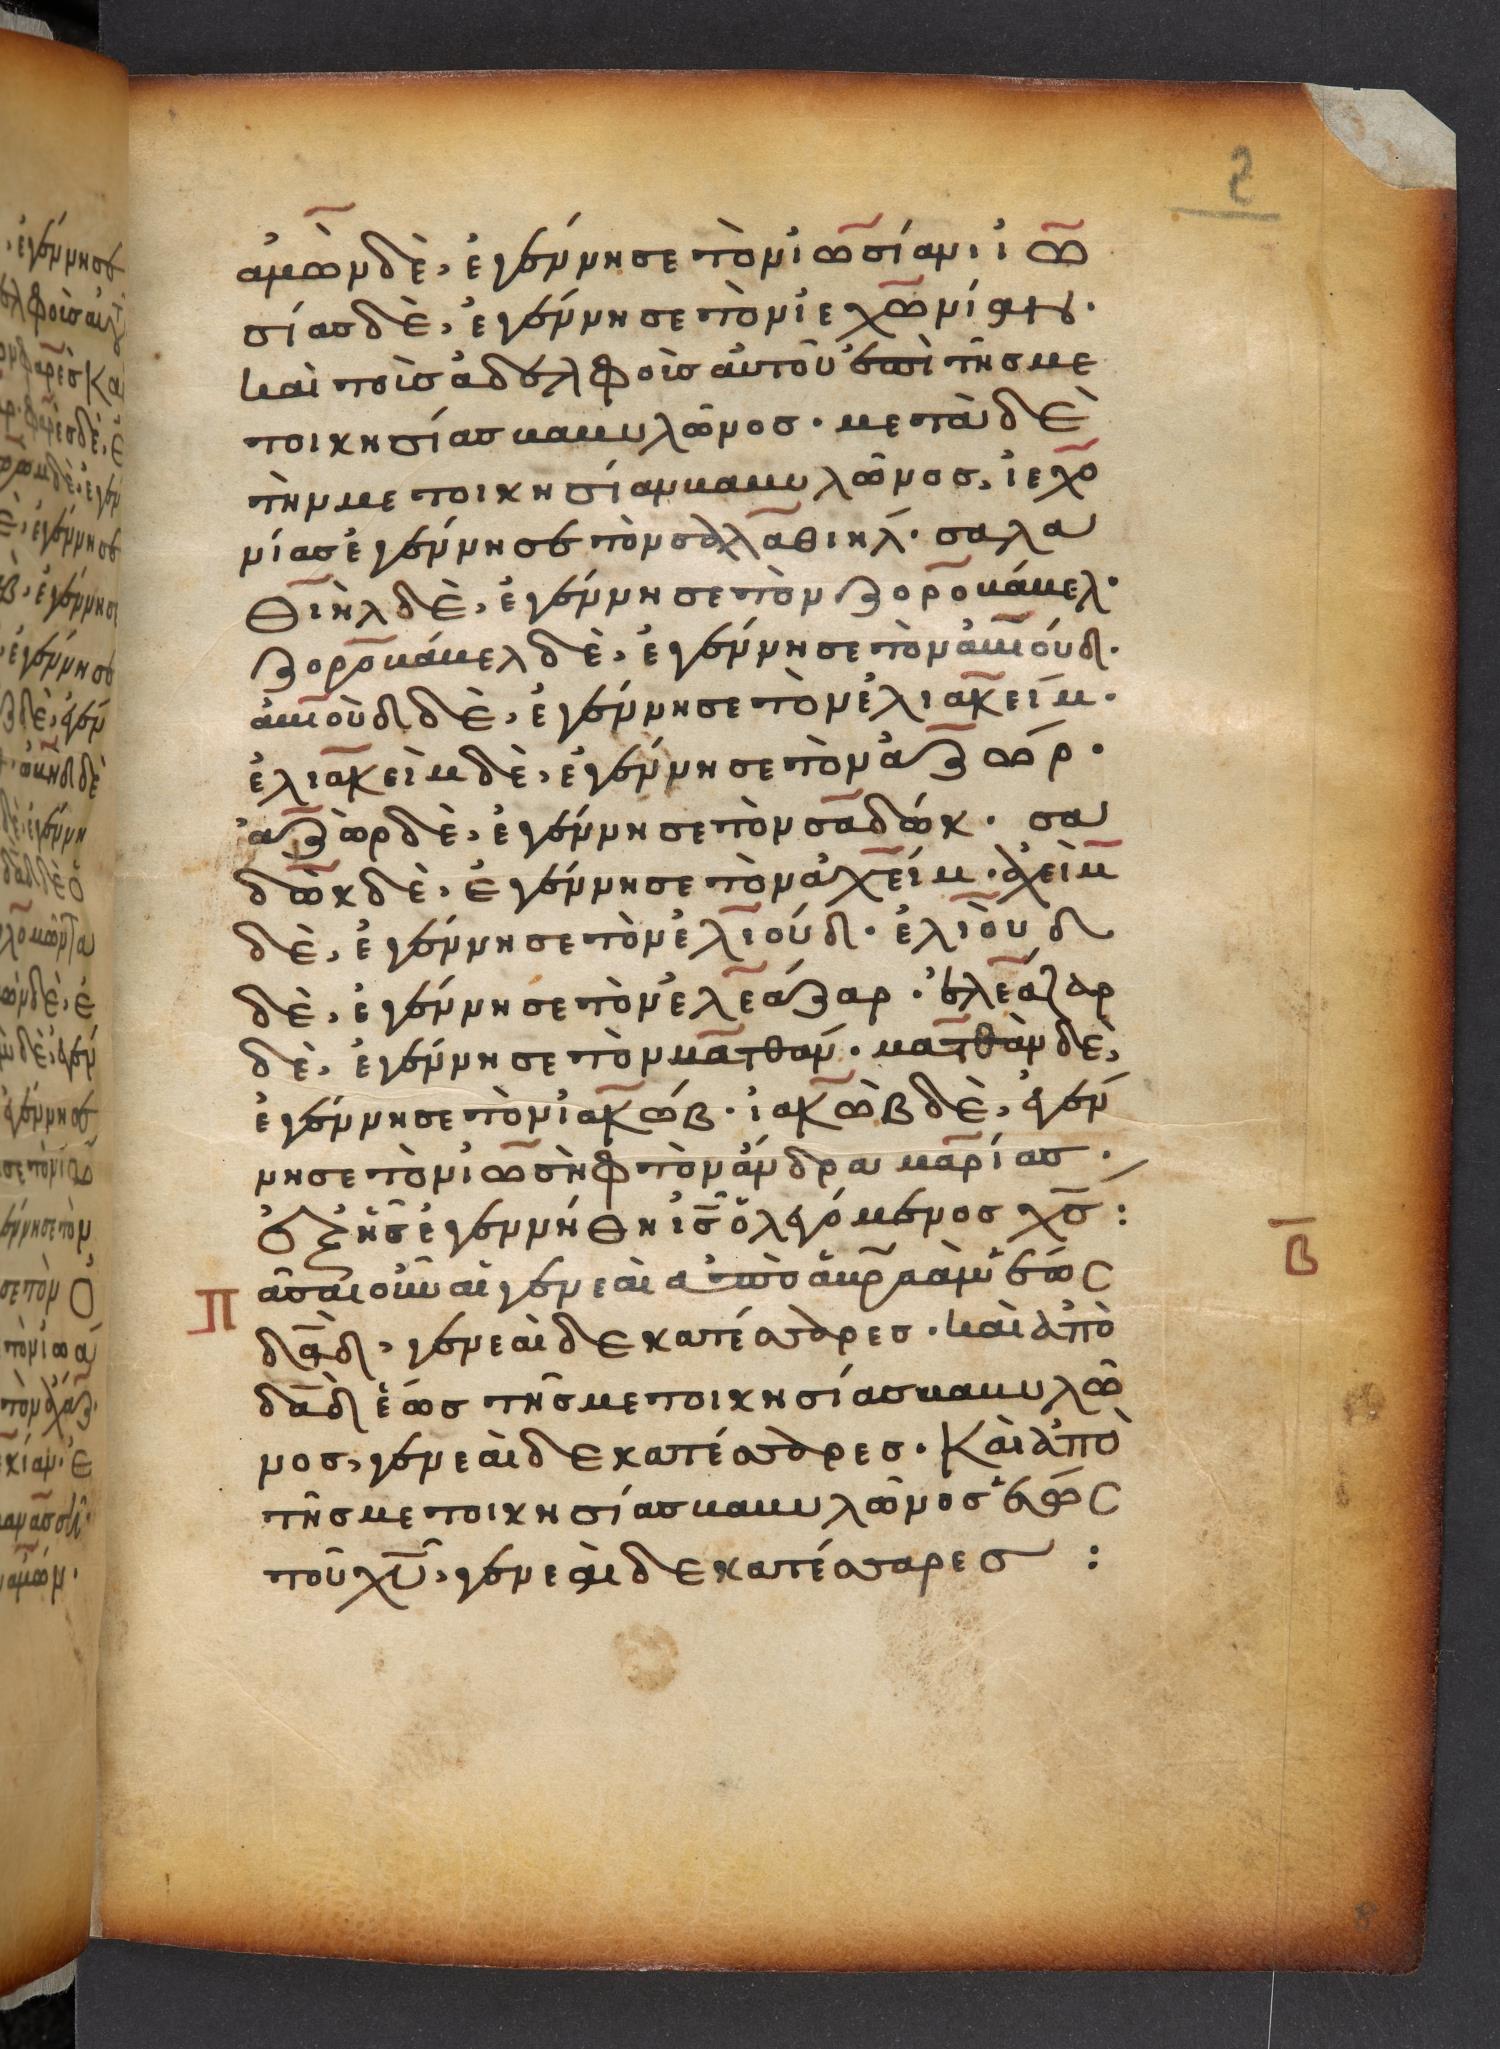 2
ἀμὼν δὲ, ἐγέννησε τὸν ἰωσίαν, ἰω
σίας δὲ, ἐγέννησε τὸν ἰεχωνίαν.
καὶ τοὺς ἀδελφοὺς αὐτοῦ ἐπὶ τῆς με
τοικησίας βαβυλῶνος. μετὰ δὲ
τὴν μετοικησίαν βαβυλῶνος, ἰεχο
νίας ἐγέννησε τὸν σαλαθιήλ. σαλα
θιὴλ δὲ, ἐγέννησε τὸν ζοροβάβελ.
ζοροβάβελ δὲ, ἐγέννησε τὸν ἀβιούδ.
ἀβιοὺδ δὲ, ἐγέννησε τὸν ἐλιακείμ.
ἐλιακεὶμ δὲ, ἐγέννησε τὸν ἀζώρ.
ἀζὼρ δὲ, ἐγέννησε τὸν σαδώκ. σα
δὼκ δὲ, ἐγέννησε τὸν ἀχείμ. ἀχεὶμ
δὲ, ἐγέννησε τὸν ἐλιούδ. ἐλιοὺδ
δὲ, ἐγέννησε τὸν ἐλεάζαρ. ἐλεάζαρ
δὲ, ἐγέννησε τὸν ματθάν. ματθὰν δὲ,
ἐγέννησε τὸν ἰακώβ. ἰακὼβ δὲ, ἐγέν
νησε τὸν ἰωσὴφ τὸν ἄνδρα μαρίας.
ἐξ ἧς ἐγεννήθη ἰς ὁ λεγόμενος χς:
Π
ᾶσαι οὖν αἱ γενεαὶ ἀπὸ ἀβρααμ ἕως
δαδ, γενεαὶ δεκατέσσαρες. καὶ ἀπὸ
δαδ ἕως τῆς μετοικησίας βαβυλῶ
νος, γενεαὶ δεκατέσσαρες. Καὶ ἀπὸ
τῆς μετοικησίας βαβυλῶνος ἕως
τοῦ χυ, γενεαὶ δεκατέσσαρες:
β
8